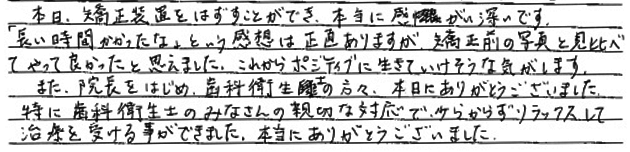 本日、矯正装置をはずすことができ、本当に感慨がい深いです。
「長い時間かかったな」という感想は正直ありますが、矯正前の写真と見比べ
てやって良かったと思えました。これからポジティブに生きていけそうな気がします。
また、院長をはじめ、歯科衛生士の方々、本日にありがとうございました。
特に歯科衛生士のみなさんの親切な対応で、心からずリラックスして
治療を受ける事ができました。本当にありがとうございました。